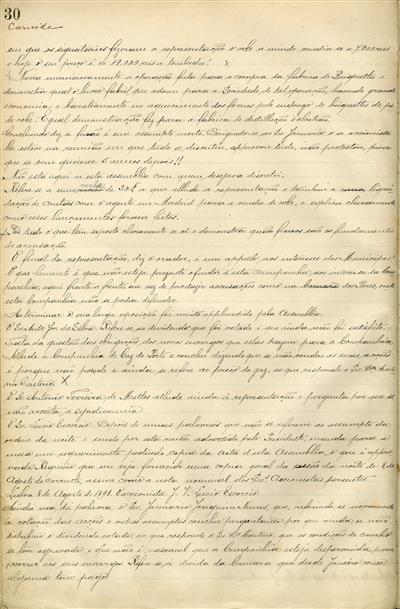 30
Carnide
em que os signatarios fizeram a representação o coke a miudo vendia-se a 7.200 reis
e hoje o seu preço é de 12.000 reis a tonelada! x
Narra minuciosamente a operação feita para a compra da fabrica de Briquettes e
demonstra qual o lucro fabril que adveiu para a Sociedade de tal operação, havendo grande
economia e barateamento no aquecimento dos fornos pelo emprego de briquettes de pó
de coke. Igual demonstração fez para a fabrica de distillação
Concluindo diz a fusão é um assumpto morto. Dirigindo-se ao Snr Januario
la estou na reunião em que tudo se discutiu, approvou tudo, não protestou, para
que se vem queixar 5 annos depois!!
Não está aqui n'esta assemblea com quem desejava discutir.
Refere-se a uma verba de 30 a que allude a representação e tambem á uma liqui-
dação de contas com o agente em Madrid para a venda de coke, e explica claramente
como esses lançamentos foram feitos.
Por tudo o que tem exposto claramente se vê e demonstra quão fracos são os fundamentos
de accusação.
O final da representação, diz o orador, é um appello aos interesses do Municipio!
O que lamento é que não esteja presente o fundador d'esta Companhia, aos interesses da Com-
panhia, aqui frente a frente em vez de produzir accusações como na Camara dos Pares, onde
esta Companhia não se podia defender.
Ao terminar a sua larga exposição foi muito applaudido pela Assembléa.
O Snr da Silva. Refere-se ao dividendo que foi votado e que ainda não foi satisfeito.
Trata da questão das obrigações dos novos encargos que ellas trazem para a Companhia
Allude á Companhia do Gaz do Porto e conclue dizendo que se não vendeu as suas acções
é porque não poude e ainda se refere ao preço do gaz, ao que responde o Snr
X
O Sr. Antonio Ferreira de Mattos allude ainda á representação e pergunta por que se
não acceita a syndicancia.
O Sr. Lucio Escorcio. Depois de umas palavras que não se referem ao assumpto da
ordem da noite e sendo por esta razão advertido pelo Presidente, manda para a
mesa um requerimento pedindo copia da acta d'esta Assembléa, o que é appro-
vado. Requeiro que me seja fornecida uma copia geral da sessão da noute de 8 de
Agosto do corrente, assim como a nota nominal dos Snrs Accionistas presentes.
Lisboa 8 de Agosto de 1891. O accionista J. T. Lucio Escorcio
Ainda usa da palavra o Snr Januario Joaquim Nunes que, referindo-se novamente
á cotação das acções e outros assumptos conclue perguntando por que ainda se não
distribuiu o dividendo votado, ao que responde o Snr que as condições do cambio
se tem aggravado e que não é rasoavel que a Companhia esteja desprevenida para
occorrer aos seus encargos. Refere-se á divida da Camara que desde Janeiro cousa
alguma tem pago.